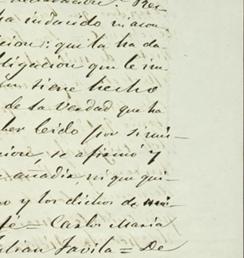 ha inducido ni acon
cion: que la ha da
ligacion que le im
n tiene hecho
de la verdad que ha
ber leido por si mis-
cion, se afirmó y
e anadir, ni que qui-
o y los dichos de
fe = Carlos Maria
ulian Favila = De